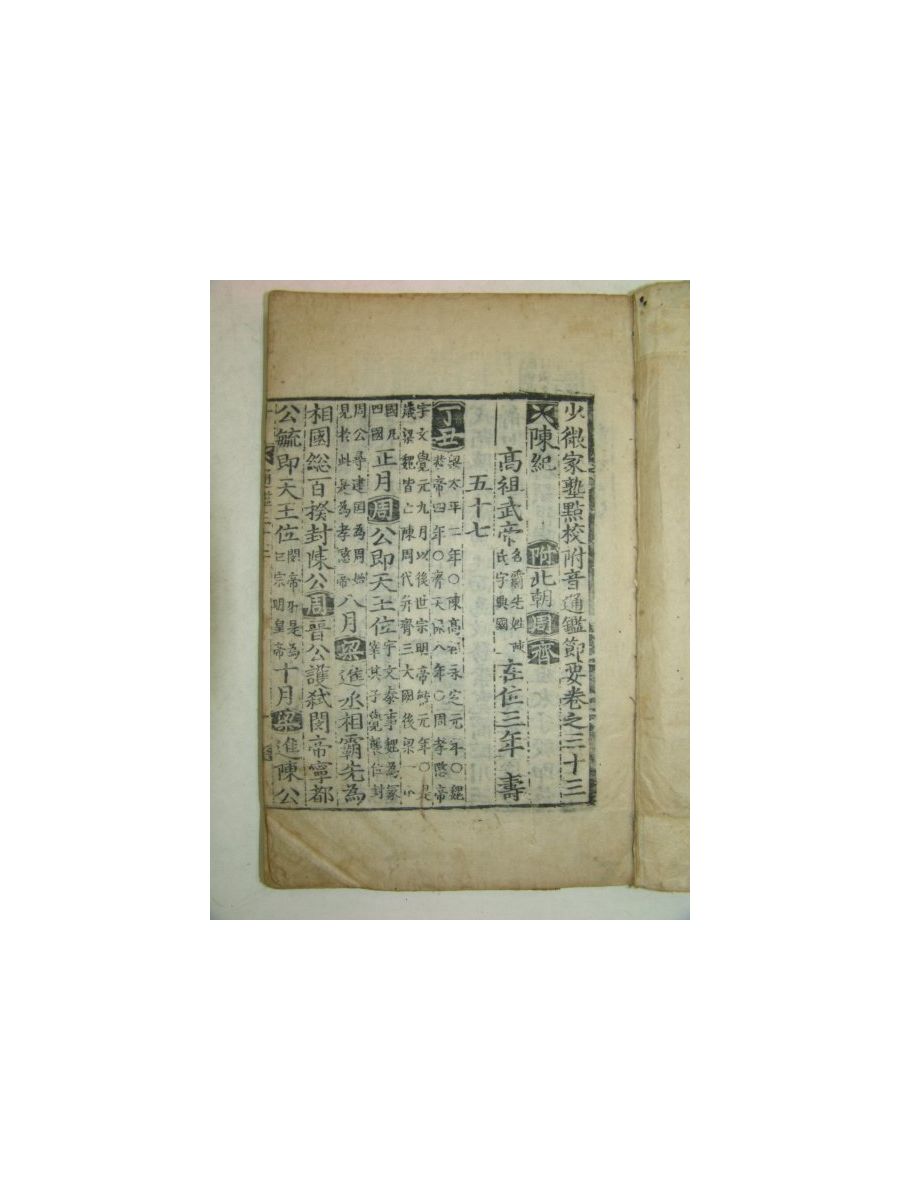 少微家塾點校附音通鑑節要卷之三十三
陳紀 附北朝 周齊
高祖武帝 名霸先姓陳氏字興國 在位三年壽
五十七
丁丑 梁太平二年○陳高祖永定元年○魏恭帝四年○齊天保八年○周孝愍帝
宇文覺元九月以後世宗明帝毓元年○是歲梁魏皆亡陳周代幷齊三大國後梁一小
國凡四國 正月周公即天王位 宇文泰事魏為冢宰其子覺襲位封
周公尋建國為周始見於此是為孝愍帝 八月梁進丞相霸先為
相國總百揆封陳公周晉公護弒閔帝寧都
公毓即天王位 閔帝弟是為世宗明皇帝 十月梁進陳公